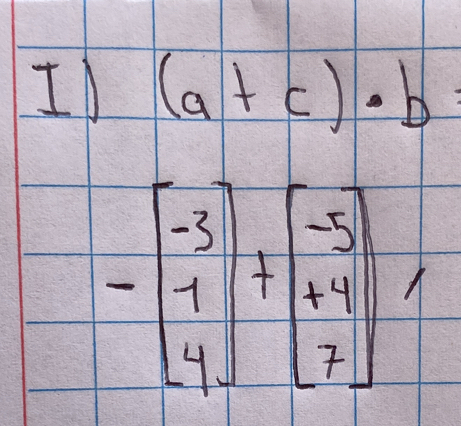 I) (a + c) · b =
- [-3 -1 4] + [-5 +4 7]